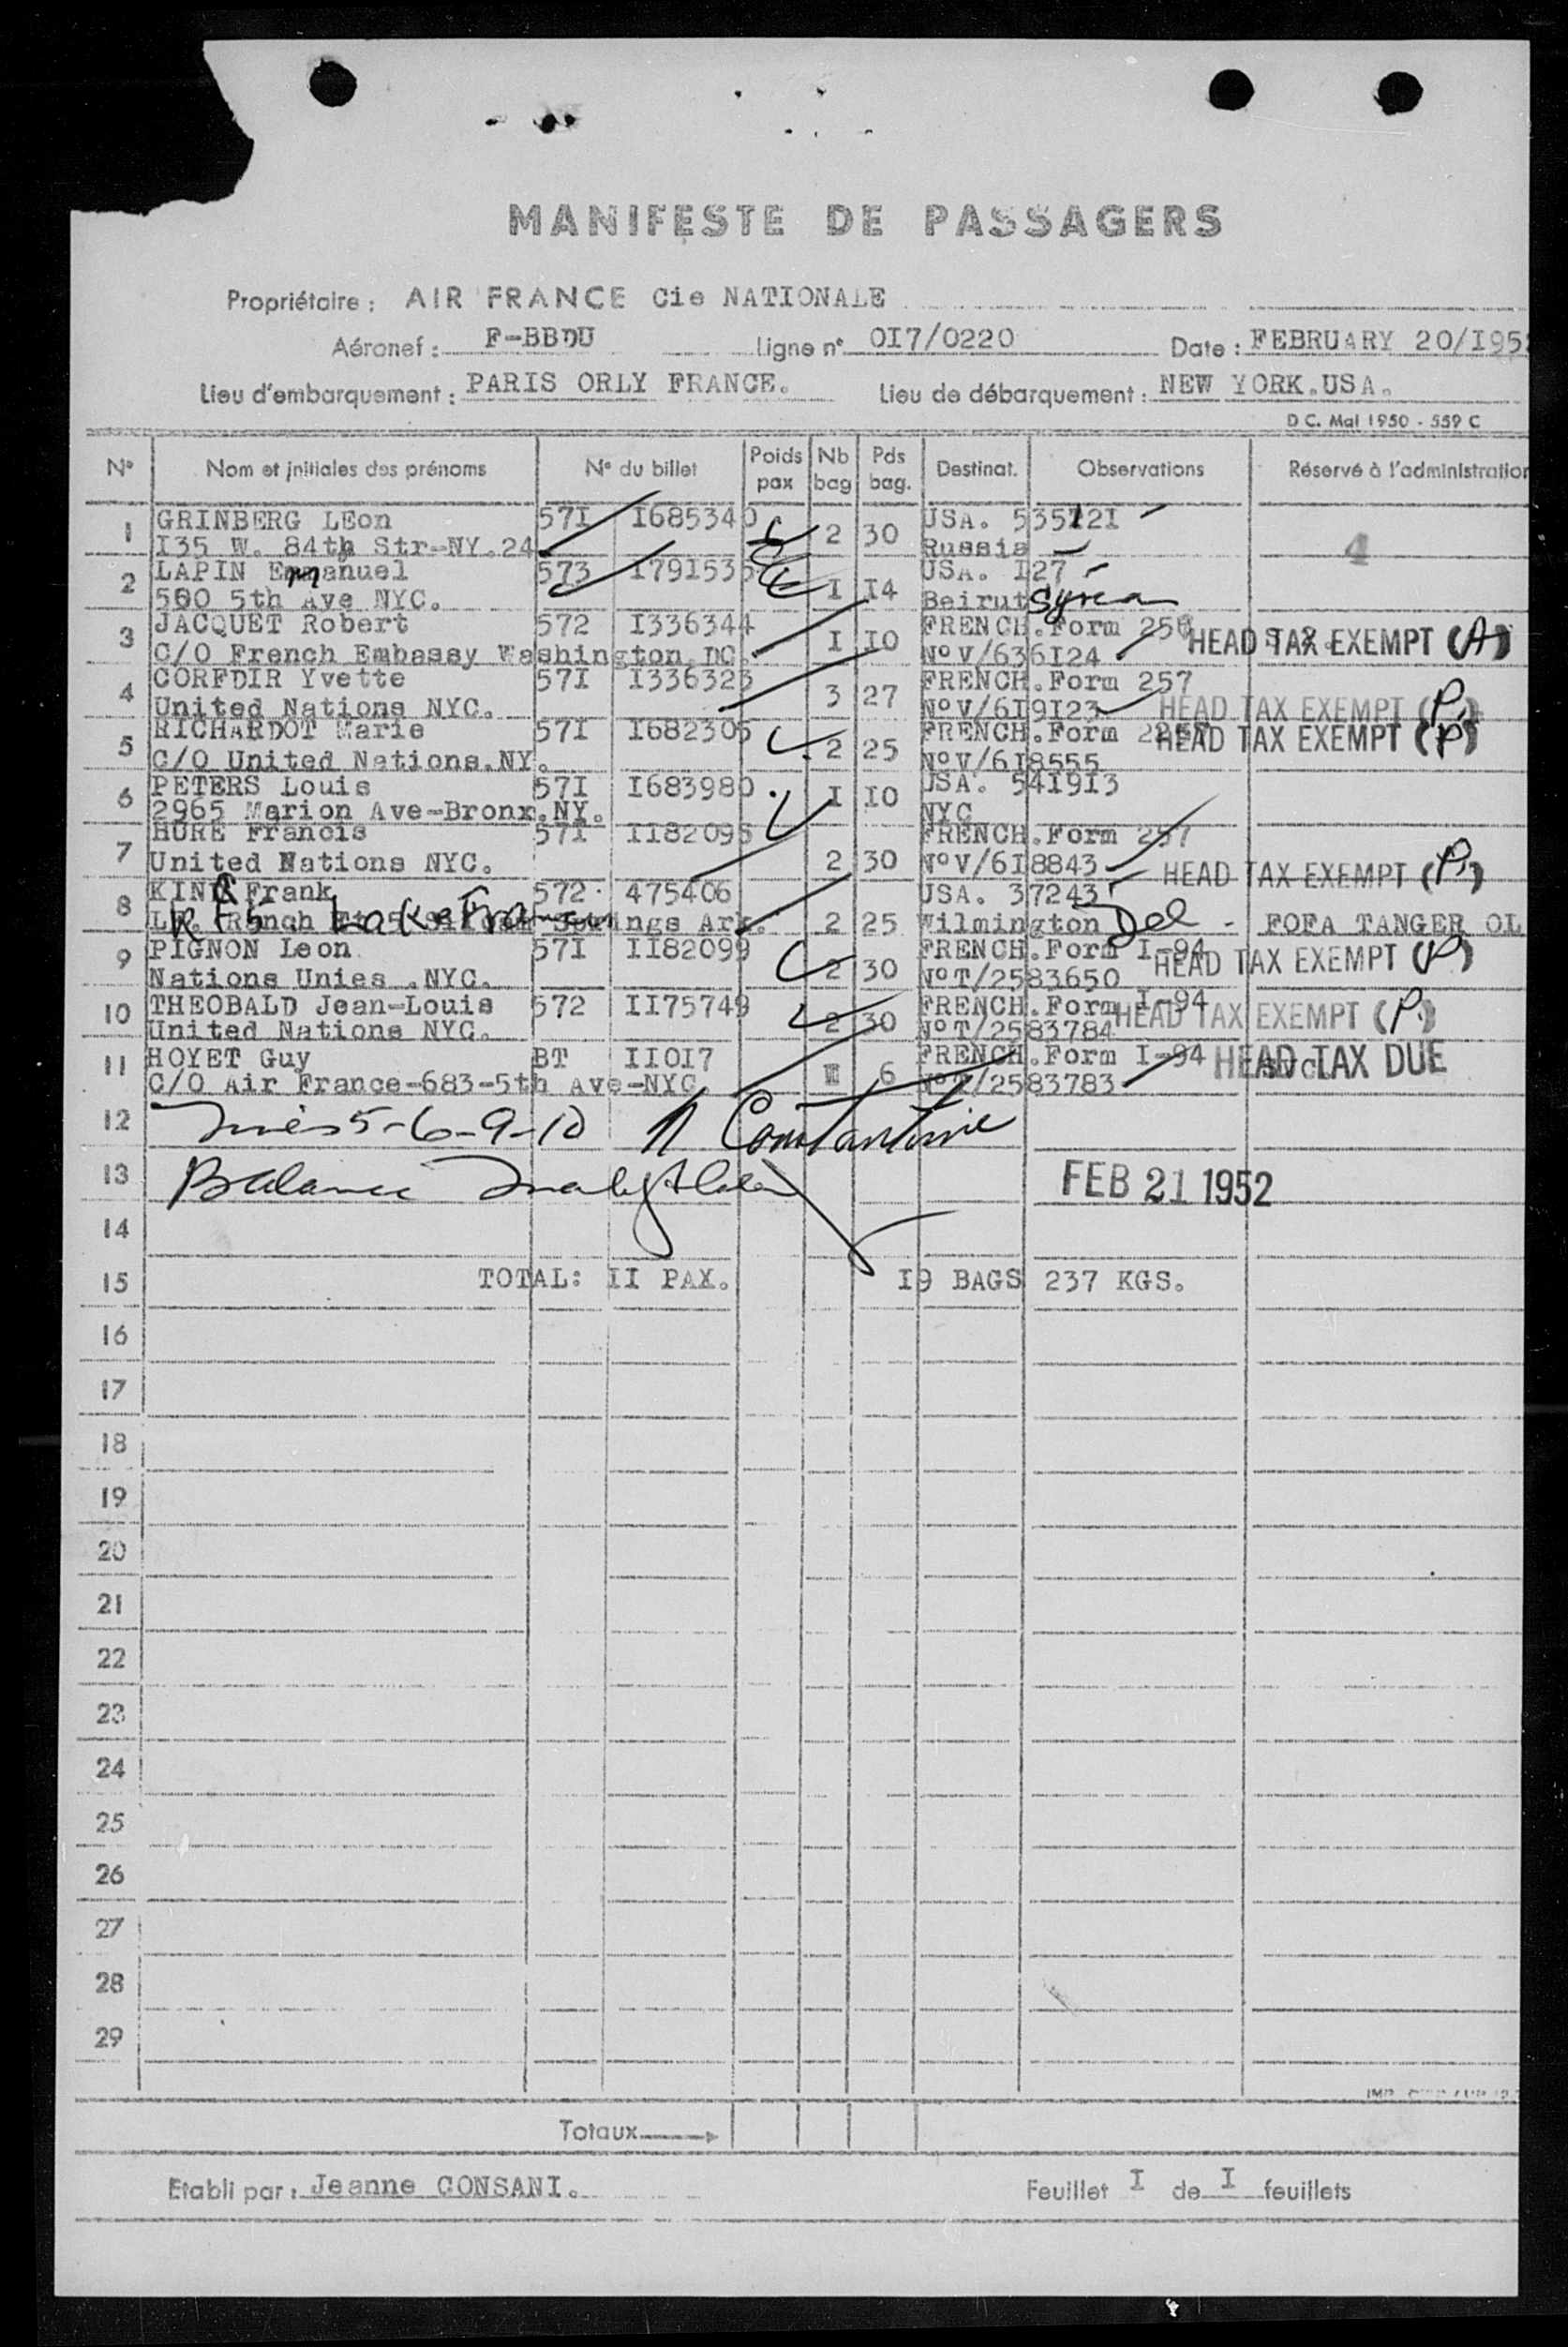 MANIFESTE DE PASSAGERS
Propriétaire : AIR FRANCE Cie NATIONALE
Aéronef : F-BBDU Ligne n° OI7/0220 Date : FEBRUARY 20/I95
Lieu d'embarquement : PARIS ORLY FRANCE. Lieu de débarquement : NEW YORK.USA.
D C. Mai 1950 - 559 C
N° Nom et initiales des prénoms N° du billet Poids pax Nb bag Pds bag. Destinat. Observations Réservé à l'administration
1 GRINBERG LEon 57I I685340 2 30 USA. 535I2I
I35 W. 84th Str-NY.24 Russia 4
2 LAPIN Emmanuel 573 I79I535 I I4 USA. I27
500 5th Ave NYC. Beirut Syria
3 JACQUET Robert 572 I336344 I IO FRENCH.Form 256 HEAD TAX EXEMPT (A)
C/O French Embassy Washington.DC. N°V/636I24
4 CORFDIR Yvette 57I I336323 3 27 FRENCH.Form 257
United Nations NYC. N°V/6I9I23 HEAD TAX EXEMPT (P.)
5 RICHARDOT Marie 57I I682305 2 25 FRENCH.Form HEAD TAX EXEMPT (P)
C/O United Nations.NY. N°V/6I8555
6 PETERS Louis 57I I683980 I IO USA. 54I9I3
2965 Marion Ave-Bronx.NY. NYC
7 HURE Francis 57I II82095 2 30 FRENCH.Form 257
United Nations NYC. N°V/6I8843 HEAD TAX EXEMPT (P.)
8 KING Frank 572 475406 2 25 USA. 37243
Ark. Wilmington Del - FOFA TANGER OL
9 PIGNON Leon 57I II82099 2 30 FRENCH.Form I-94
Nations Unies .NYC. N°T/2583650 HEAD TAX EXEMPT (P)
10 THEOBALD Jean-Louis 572 II75749 2 30 FRENCH.Form I-94
United Nations NYC. N°T/2583784 HEAD TAX EXEMPT (P.)
11 HOYET Guy BT IIOI7 6 FRENCH.Form I-94 HEAD TAX DUE
C/O Air France-683-5th Ave-NYC N°T/2583783
12 5-6-9-10 Constantine
13 Balance FEB 21 1952
14
15 TOTAL: II PAX. I9 BAGS 237 KGS.
16
17
18
19
20
21
22
23
24
25
26
27
28
29
Totaux
Etabli par : Jeanne CONSANI. Feuillet I de I feuillets